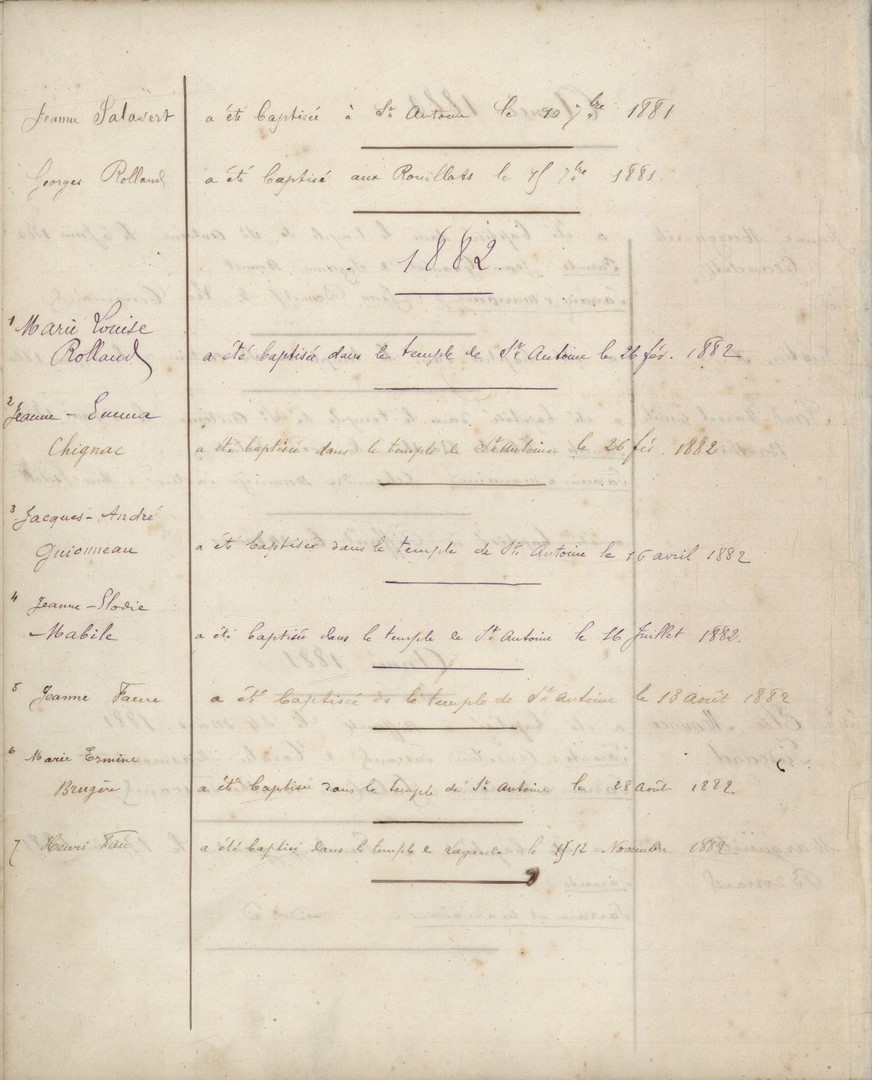 Jeanne Salavert a été baptisée à St Antoine le 10 7bre 1881
Georges Rolland a été baptisé aux Rouillats le 15 7bre 1881.
1882.
1 Marie Louise
Rolland a été baptisée dans le temple de St Antoine le 26 fév. 1882
2 Jeanne-Emma
Chignac a été baptisée dans le temple de St Antoine le 26 fév. 1882
3 Jacques-André
Guionneau a été baptisée dans le temple de St Antoine le 16 avril 1882
4 Jeanne-Elodie
Mabile a été baptisée dans le temple de St Antoine le 16 Juillet 1882.
5 Jeanne Faure a été baptisée ds le temple de St Antoine le 13 Août 1882
6 Marie Ermine
Brugère a été baptisée dans le temple de St Antoine le 28 Août 1882
7 Henri Fau a été baptisé dans le temple de le 12 Novembre 1882